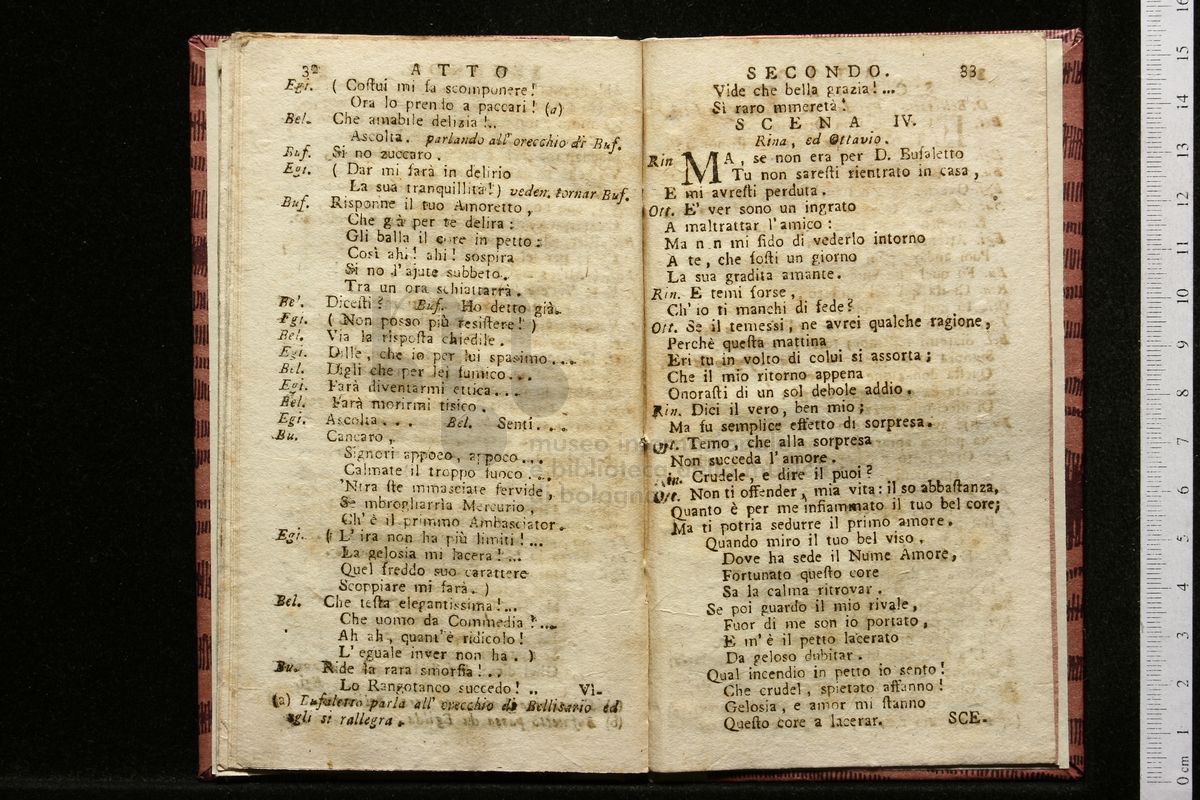 32 ATTO
Egi. ( Coſtui mi fa scomponere!
Ora lo prendo a paccari! (a)
Bel. Che amabile delizia!..
Ascolta. parlando all' orecchio di Buf.
Buf. Si no zuccaro.
Egi. ( Dar mi farà in delirio
La sua tranquillità!) veden. tornar Buf.
Buf. Risponne il tuo Amoretto,
Che già per te delira:
Gli balla il core in petto:
Così ahi! ahi! sospira
Si no l'ajute subbeto.
Tra un ora schiattarrà.
Be'. Dicesti? Buf. Ho detto già.
Egi. ( Non posso più resiſtere! )
Bel. Via la risposta chiedile.
Egi. Dille, che io per lui spasimo....
Bel. Digli che per lei fumico....
Egi. Farà diventarmi ettica....
Bel. Farà morirmi tisico.
Egi. Ascolta... Bel. Senti....
Bu. Cancaro,
Signori appoco, appoco...
Calmate il troppo fuoco...
'Ntra ſte mmasciate fervide,
Se mbrogliarria Mercurio,
Ch'è il primmo Ambasciator.
Egi. ( L'ira non ha più limiti!...
La gelosia mi lacera!...
Quel freddo suo carattere
Scoppiare mi farà. )
Bel. Che teſta elegantissima!...
Che uomo da Commedia?...
Ah ah, quant'è ridicolo!
L'eguale inver non ha. )
Bu. Ride la rara smorfia!..
Lo Rangotanco succedo! .. Vi-
(a) Bufaletto parla all' orecchio di Bellisario ed
egli si rallegra.
SECONDO. 33
Vide che bella grazia!...
Si raro mmeretà!
SCENA IV.
Rina, ed Ottavio.
Rin MA, se non era per D. Bufaletto
Tu non sareſti rientrato in casa,
E mi avreſti perduta.
Ott. E' ver sono un ingrato
A maltrattar l'amico:
Ma non mi fido di vederlo intorno
A te, che foſti un giorno
La sua gradita amante.
Rin. E temi forse,
Ch'io ti manchi di fede?
Ott. Se il temessi, ne avrei qualche ragione,
Perchè queſta mattina
Eri tu in volto di colui sì assorta;
Che il mio ritorno appena
Onoraſti di un sol debole addio.
Rin. Dici il vero, ben mio;
Ma fu semplice effetto di sorpresa.
Ott. Temo, che alla sorpresa
Non succeda l'amore.
Rin. Crudele, e dire il puoi?
Ott. Non ti offender, mia vita: il so abbaſtanza,
Quanto è per me infiammato il tuo bel core;
Ma ti potria sedurre il primo amore.
Quando miro il tuo bel viso,
Dove ha sede il Nume Amore,
Fortunato queſto core
Sa la calma ritrovar.
Se poi guardo il mio rivale,
Fuor di me son io portato,
E m'è il petto lacerato
Da geloso dubitar.
Qual incendio in petto io sento!
Che crudel, spietato affanno!
Gelosia, e amor mi ſtanno
Queſto core a lacerar. SCE-